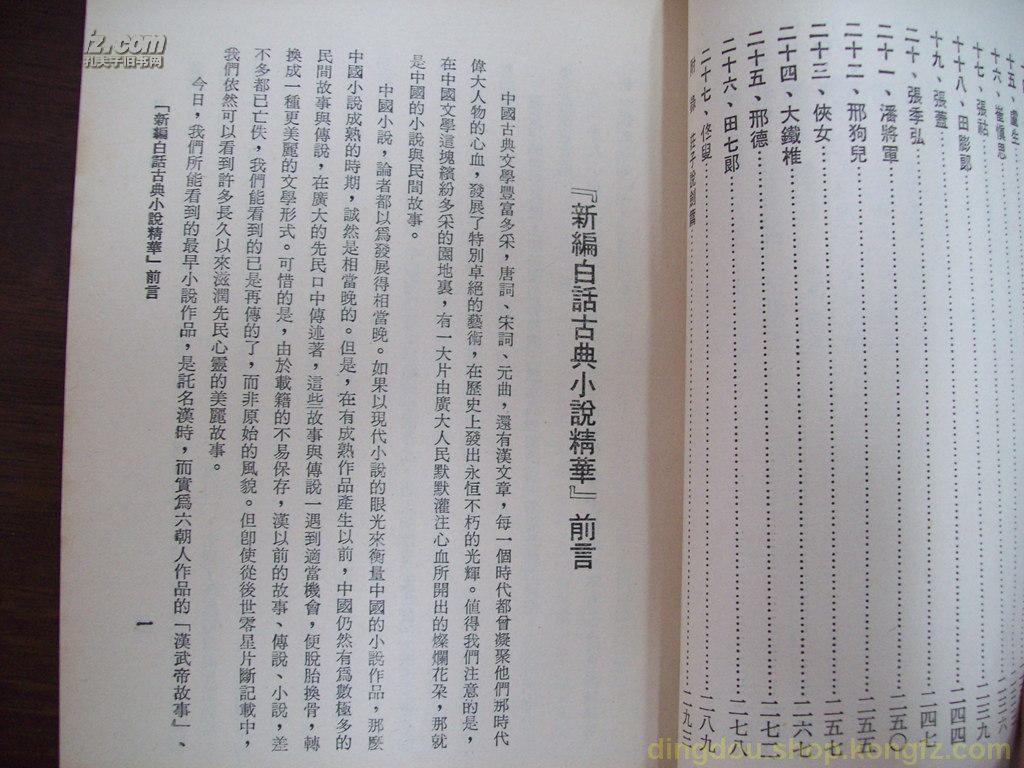 十五、盧生
十六、崔慎思
十七、張祜
十八、田膨郎
十九、張蓋
二十、張季弘
二十一、潘將軍
二十二、邢狗兒
二十三、俠女
二十四、大鐵椎
二十五、邢德
二十六、田七郎
二十七、佟叟
附錄 莊子說劍篇
二三六
二三九
二四四
二四七
二五〇
二五五
二五七
二六七
二七二
二七八
二八九
二九三
『新編白話古典小說精華』前言
中國古典文學豐富多采，唐詞、宋詞、元曲，還有漢文章，每一個時代都曾凝聚他們那時代
偉大人物的心血，發展了特別卓絕的藝術，在歷史上發出永恒不朽的光輝。值得我們注意的是，
在中國文學這塊繽紛多采的園地裏，有一大片由廣大人民默默灌注心血所開出的燦爛花朶，那就
是中國的小說與民間故事。
中國小說，論者都以爲發展得相當晚。如果以現代小說的眼光來衡量中國的小說作品，那麼
中國小說成熟的時期，該然是相當晚的。但是，在有成熟作品產生以前，中國仍然有爲數極多的
民間故事與傳說，在廣大的先民口中傳述著，這些故事與傳說一遇到適當機會，便脫胎換骨，轉
換成一種更美麗的文學形式。可惜的是，由於載籍的不易保存，漢以前的故事、傳說、小說，差
不多都已亡佚，我們能看到的已是再傳的了，而非原始的風貌。但卽使從後世零星片斷記載中，
我們依然可以看到許多長久以來滋潤先民心靈的美麗故事。
今日，我們所能看到的最早小說作品，是託名漢時，而實爲六朝人作品的「漢武帝故事」、
「新編白話古典小說精華」前言
一
iz.com
孔夫子旧书网
dingdou.shop.kongfz.com